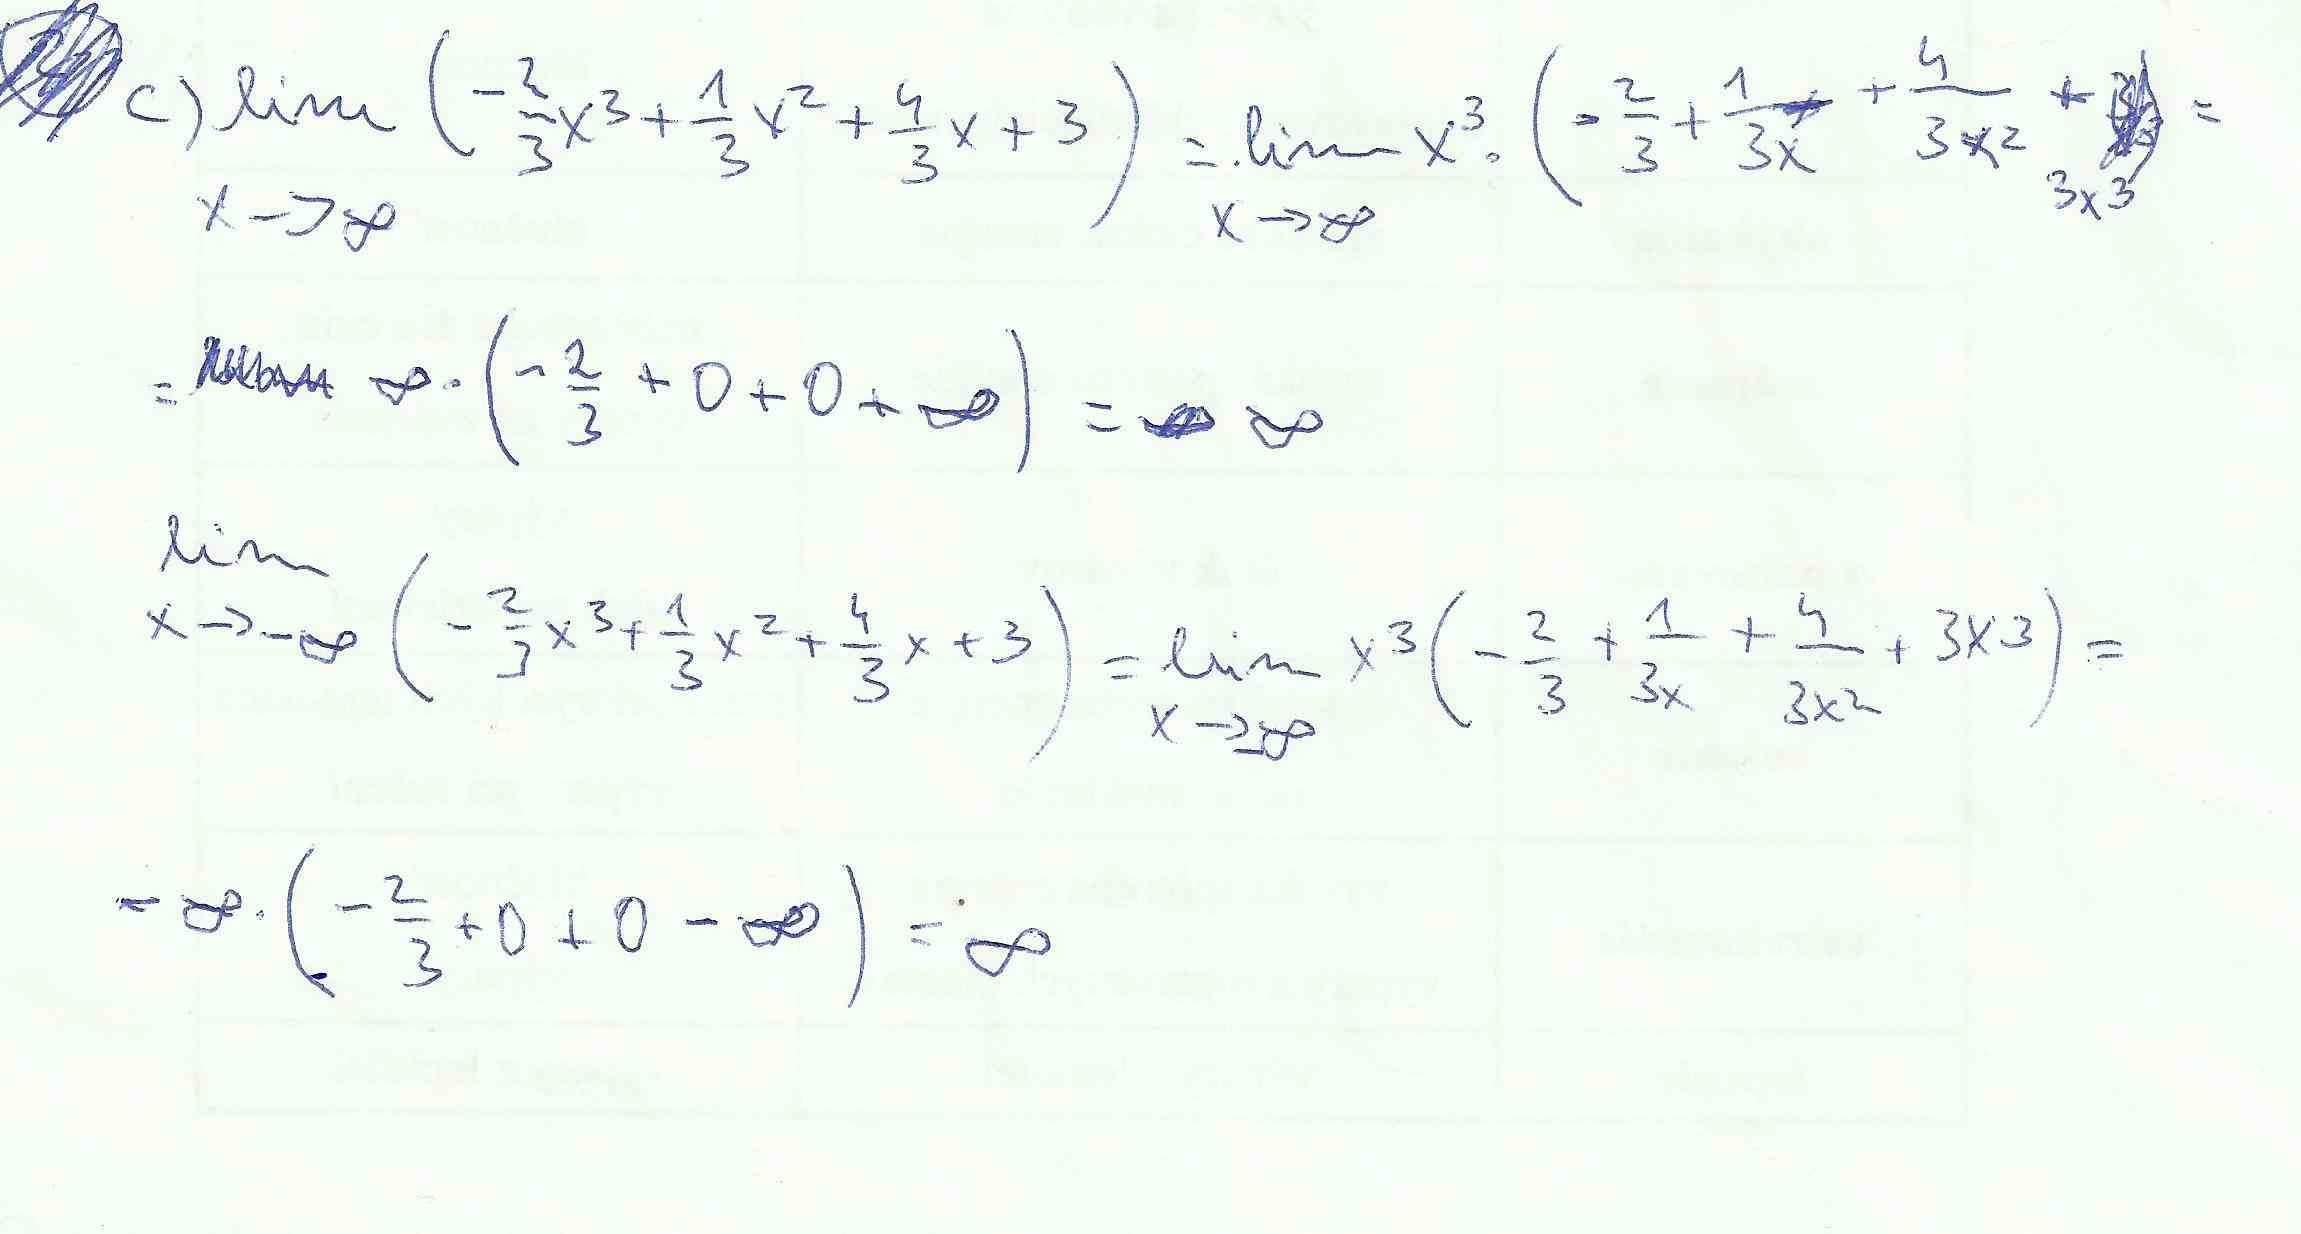 c) lim (-2/3 x³ + 1/3 x² + 4/3 x + 3) = lim x³ · (-2/3 + 1/3x + 4/3x² + 3x3) =
x → ∞ x → ∞
= ∞ · (-2/3 + 0 + 0 + ∞) = ∞
lim
x → -∞ (-2/3 x³ + 1/3 x² + 4/3 x + 3) = lim x³ (-2/3 + 1/3x + 4/3x² + 3x3) =
x → -∞
= ∞ · (-2/3 + 0 + 0 - ∞) = ∞